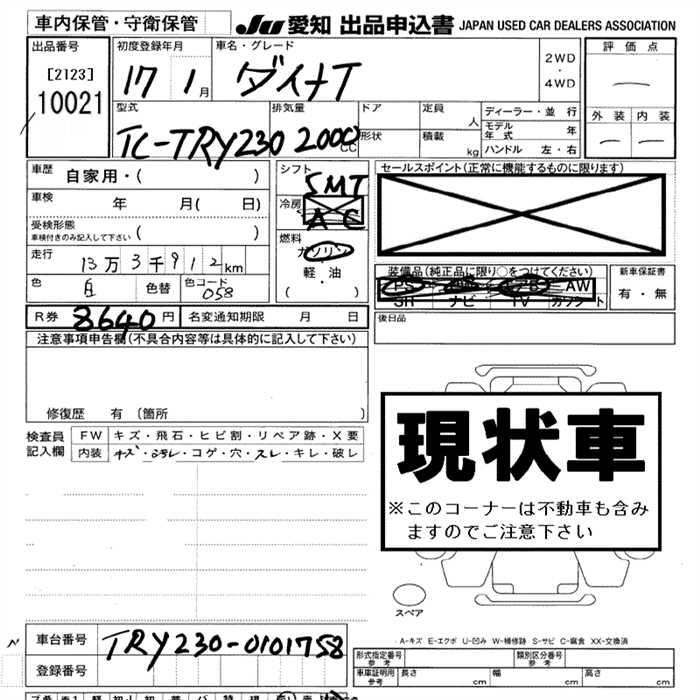 車内保管・守衛保管
JU 愛知 出品申込書 JAPAN USED CAR DEALERS ASSOCIATION
出品番号
[2123]
10021
初度登録年月
17 1月
車名・グレード
ダイナT
2WD
・
4WD
評価点
外装 内装
型式
TC-TRY230
排気量
2000
CC
ドア
形状
定員
人
積載
kg
ディーラー・並行
モデル
年式 年
ハンドル 左・右
車歴 自家用・( )
車検 年 月( 日)
受検形態
車検付きのみ記入して下さい ( )
走行 13万3千912km
色 白 色替 色コード 058
シフト
5MT
冷房
AC
燃料
ガソリン
軽・油
( ・ )
セールスポイント(正常に機能するものに限ります)
装備品(純正品に限り○をつけてください)
PS AW
SH ナビ TV カワシート
新車保証書
有・無
後日品
R券 8640円 名変通知期限 月 日
注意事項申告欄(不具合内容等は具体的に記入して下さい)
修復歴 有〔箇所
検査員
記入欄
FW キズ・飛石・ヒビ割・リペア跡・X要
内装 キズ・ヨゴレ・コゲ・穴・スレ・キレ・破レ
現状車
※このコーナーは不動車も含み
ますのでご注意下さい
スペア
A-キズ E-エクボ U-凹み W-補修跡 S-サビ C-腐食 XX-交換済
車台番号 TRY230-0101758
登録番号
形式指定番号
参考
類別区分番号
参考
車庫証明用
参考
長さ cm 幅 cm 高さ cm